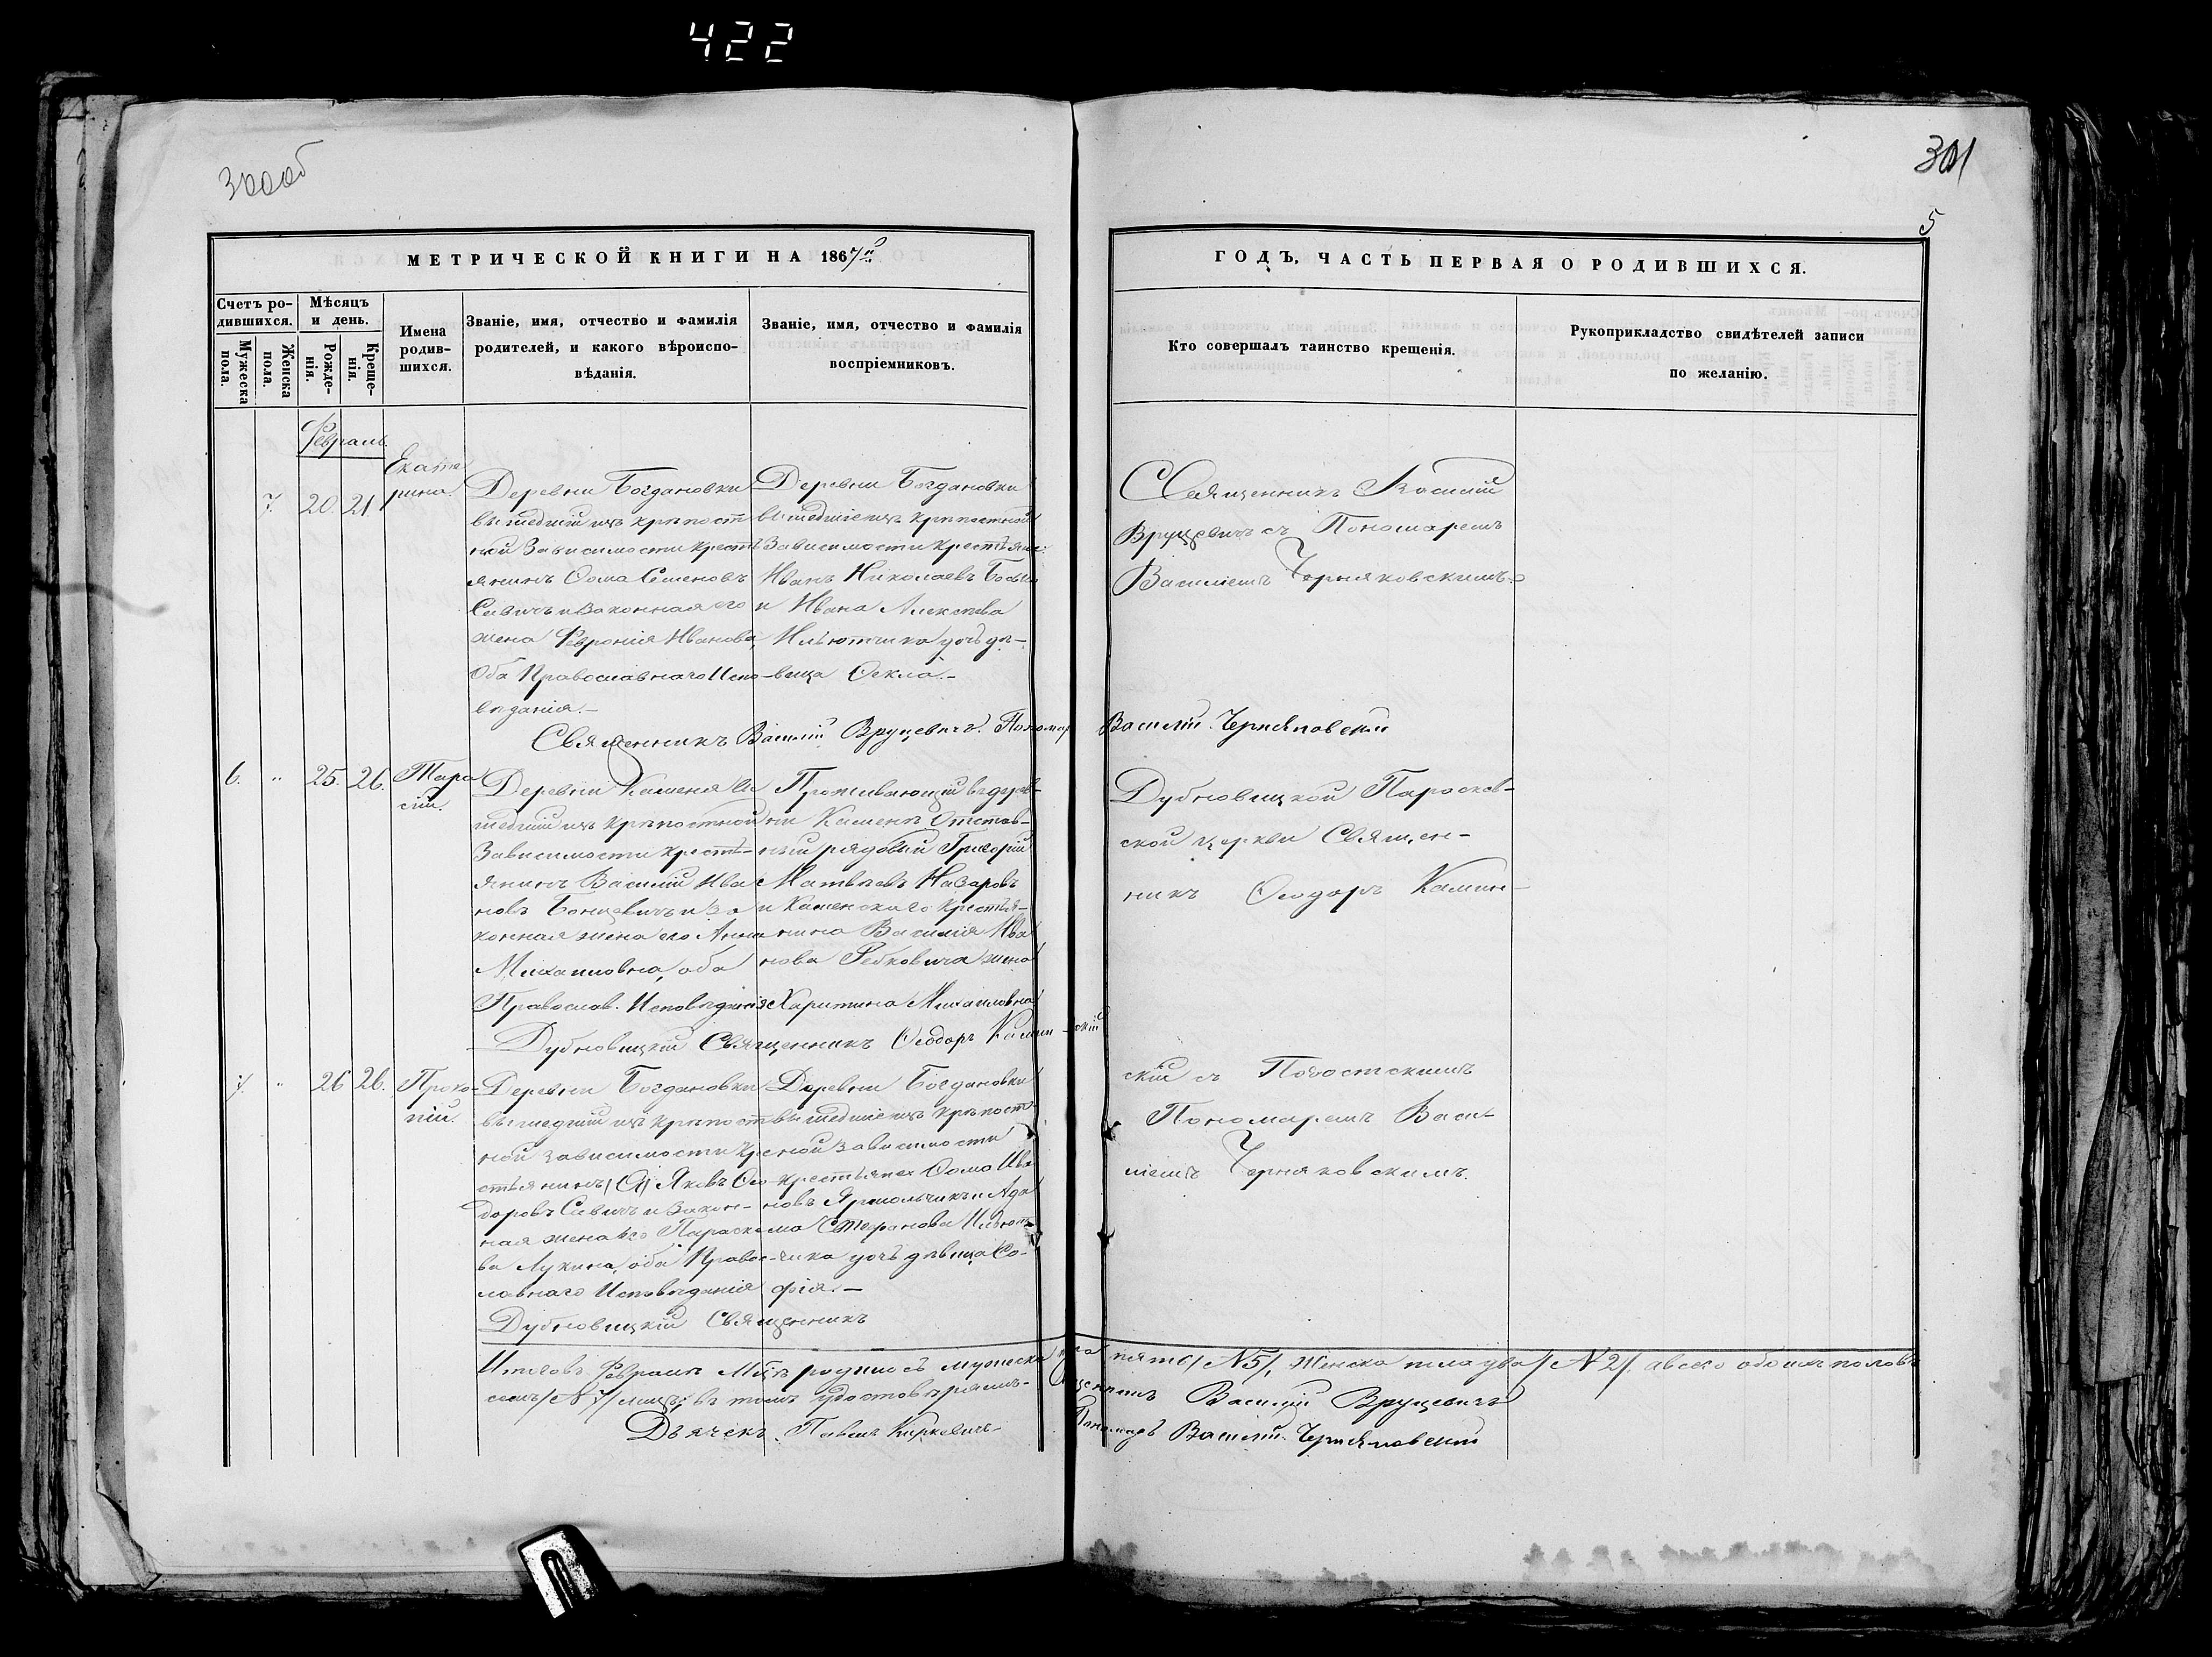 422
300об
301
5
МЕТРИЧЕСКОЙ КНИГИ НА 1867й
ГОДЪ, ЧАСТЬ ПЕРВАЯ О РОДИВШИХСЯ.
Счетъ ро-
дившихся.
Мужеска
пола.
Женска
пола.
Мѣсяцъ
и день.
Рожде-
нія.
Креще-
нія.
Имена
родив-
шихся.
Званіе, имя, отчество и фамилія
родителей, и какого вѣроиспо-
вѣданія.
Званіе, имя, отчество и фамилія
воспріемниковъ.
Кто совершалъ таинство крещенія.
Рукоприкладство свидѣтелей записи
по желанію.
Февраль.
7. 20. 21.
Екате
рина.
Деревни Богдановки
вышедшій изъ крѣпост
ной Зависимости крестѣ
янинъ Ѳома Семеновъ
Савичъ и Законная его
жена Феврónія Иванова,
Оба Православнаго Испо-
вѣданія.-
Деревни Богдановки
вышедшіе изъ крѣпостной
Зависимости крестѣяне:
Иванъ Николаевъ
и Ивана Алексѣева
Ильютчика дочь дѣ-
вица Ѳекла.-
Священникъ Василій
Вруцевичъ съ Пономаремъ
Василіемъ Черняковскимъ.
Священникъ Василій Вруцевичъ. Пономарь Василій Черняковскій
6. " 25. 26.
Тара
сій.
Деревни Каменя Вы
шедшій изъ крѣпостной
Зависимости крестѣ-
янинъ Василій Ива
новъ Бонцевичъ и за
конная жена его Анна
Михаиловна, оба
Православ. Исповѣданія
Проживающій въ дерев-
ни Каменѣ Отстав-
ный рядовый Григорій
Матвѣевъ Назаровъ
и Каменскаго крестѣя-
нина Василія Ива
нова Ребковича жена
Харитина Михаиловна
Дубновицкой Параскев-
ской церкви Священ-
никъ Ѳеодоръ Камин-
Дубновицкій Священникъ Ѳеодоръ Камин-скій
7. " 26 26.
Проко-
пій.
Деревни Богдановки
вышедшій изъ крѣпост
ной зависимости кре
стьянинъ Яковъ Ѳео-
доровъ Савичъ и Закон-
ная жена его Параске
ва Лукина, оба Право-
славнаго Исповѣданія
Деревни Богдановки
вышедшіе изъ крѣпост-
ной зависимости
крестьяне Ѳома Ива
новъ Ярмольчикъ и Ада
ма Стефанова Ильют-
чика дочь дѣвица Со-
фія.-
скій съ Погостскимъ
Пономаремъ Васи-
ліемъ Черняковскимъ.
Дубновицкій Священникъ
Итогъ въ Февралѣ Мцѣ родилось мужеска пола пять/№5/, женска пола два/№2/, а всего обоихъ половъ
семь/№7/ лицъ: въ томъ удостовѣряемъ-
Василій Вруцевичъ
Дьячекъ Павелъ Киркевичъ
Пономарь Василій Черняковскій